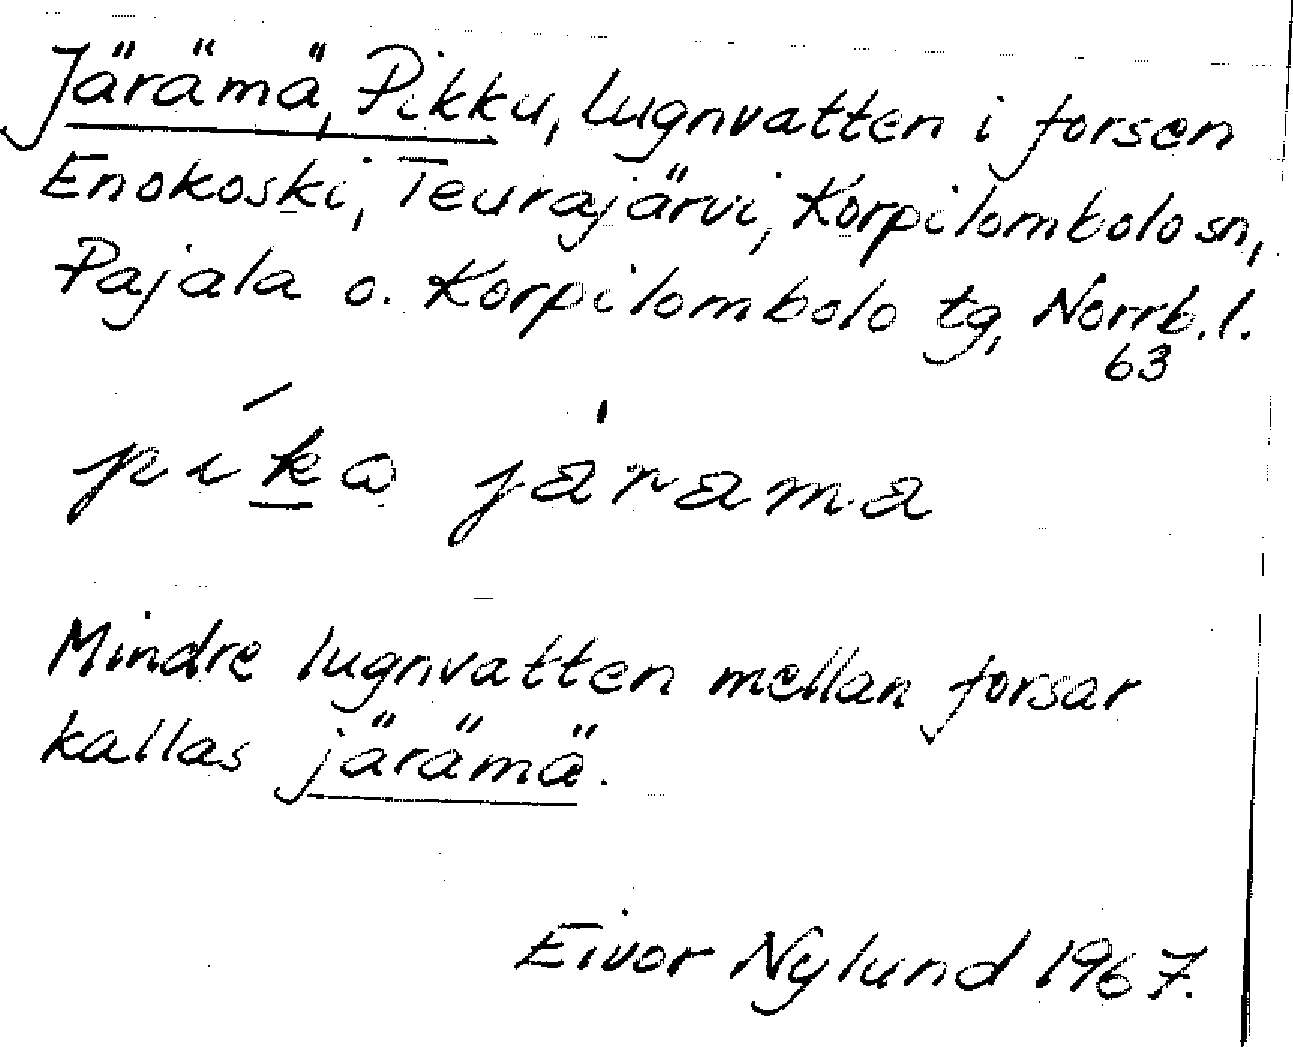 Järämä, Pikku, lugnvatten i forsen
Enokoski, Teurajärvi, Korpilombolo sn,
Pajala o. Korpilombolo tg, Norrb. l.
63
pika järama
Mindre lugnvatten mellan forsar
kallas järämä.
Eivor Nylund 1967.